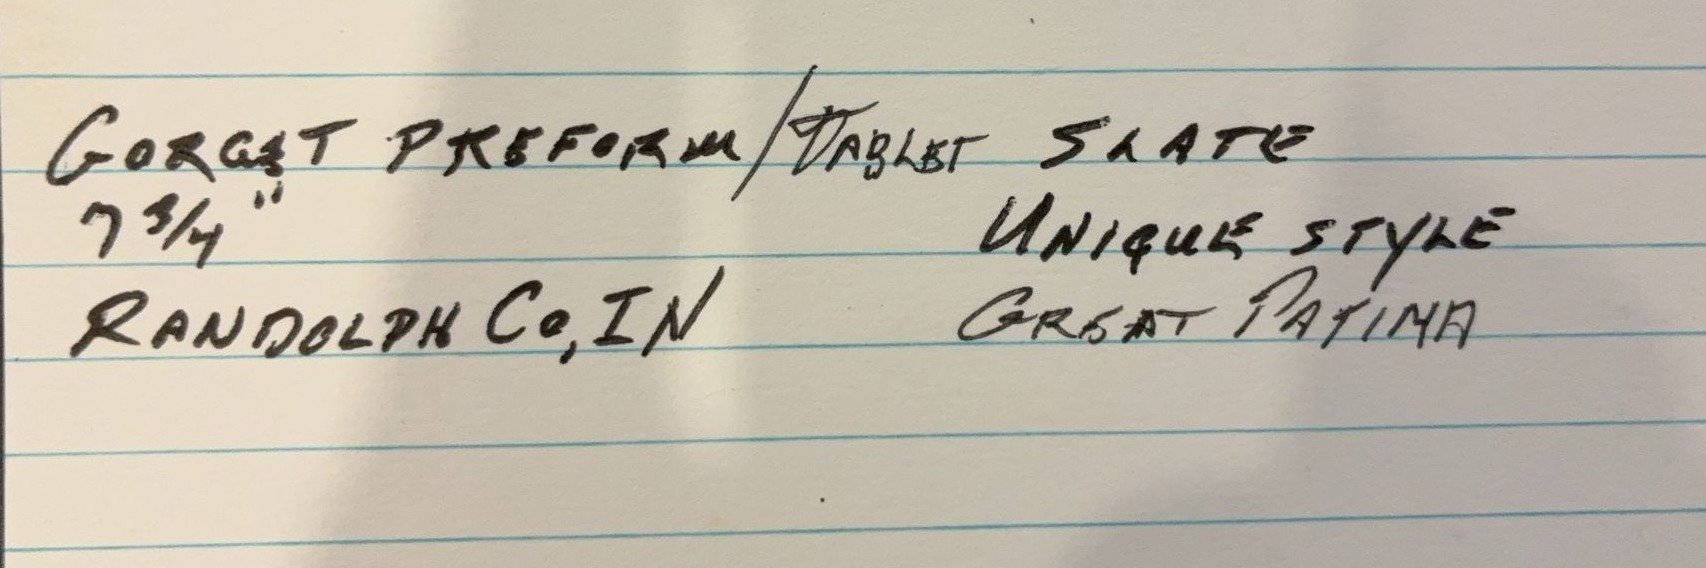 GORGET PREFORM/TABLET SLATE
7 3/4" UNIQUE STYLE
RANDOLPH Co, IN GREAT PATINA